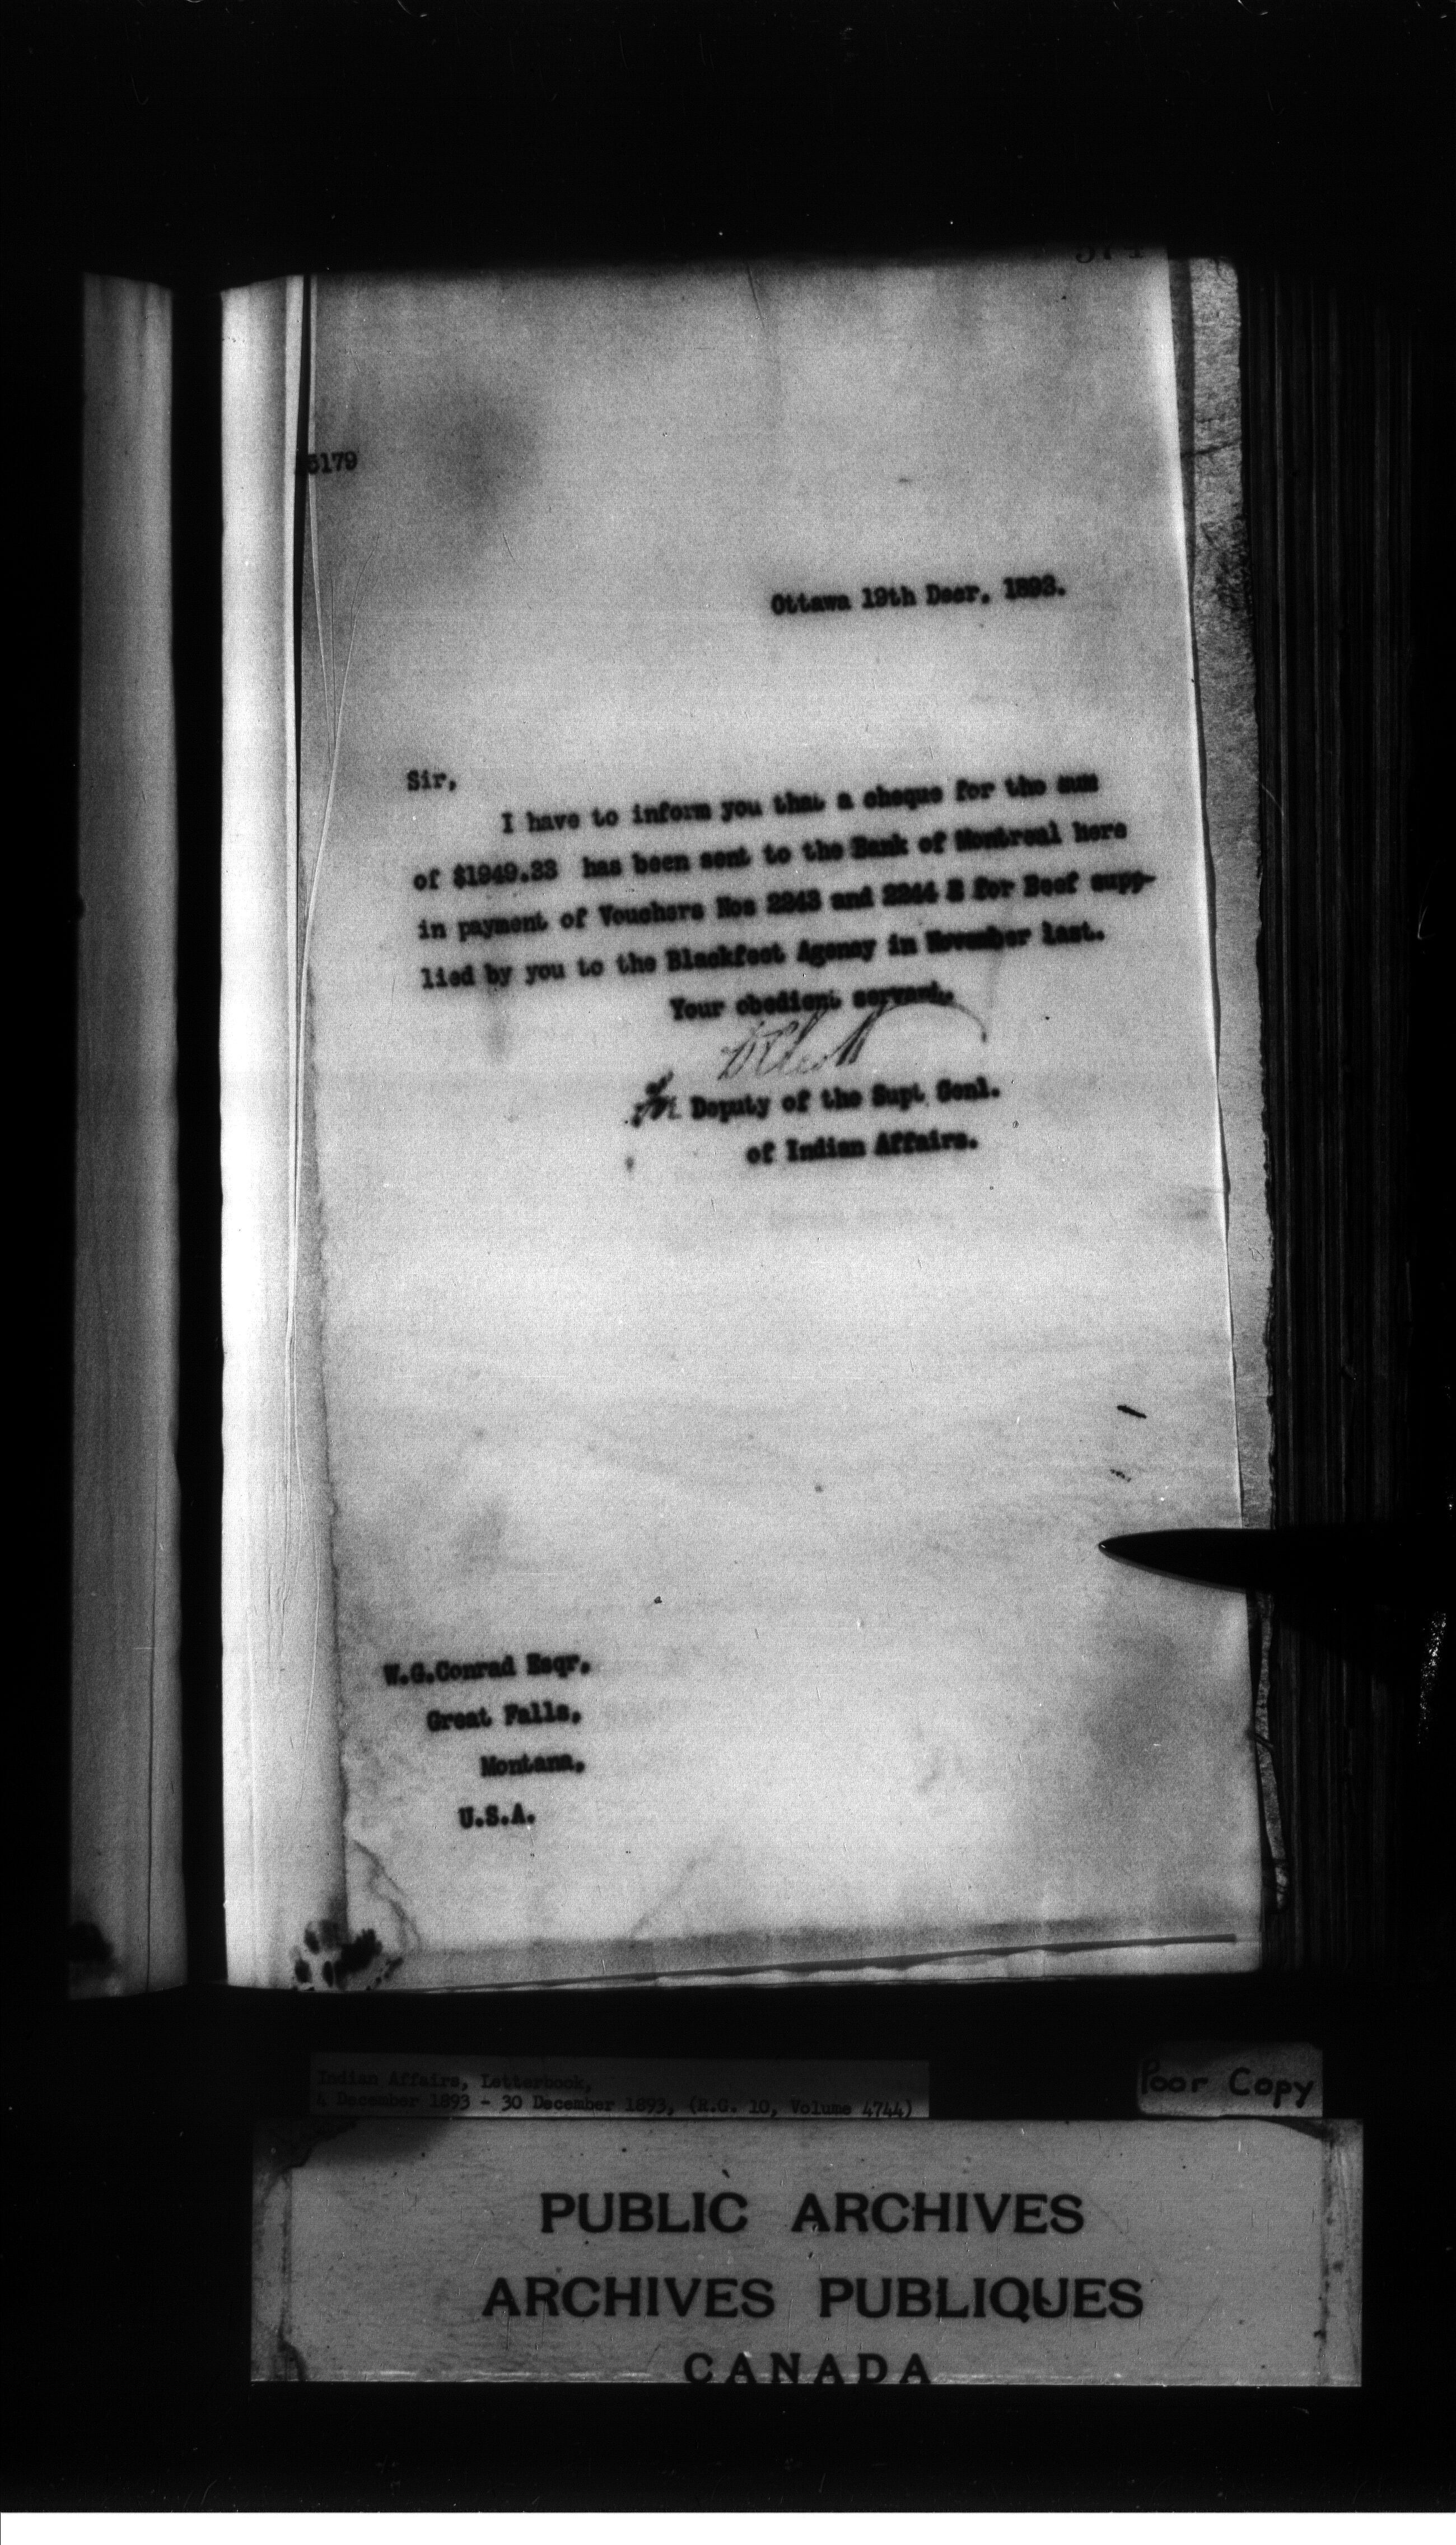 5179
Ottawa 19th Decr, 1893.
Sir,
I have to inform you that a cheque for the sum
of $1949.33 has been sent to the Bank of Montreal here
in payment of Vouchers Nos 2243 and 2244 E for Beef supp-
lied by you to the Blackfeet Agency in November last.
Your obedient servant,
for Deputy of the Supt Genl.
of Indian Affairs.
W.G.Conrad Esqr,
Great Falls,
Montana,
U.S.A.
Indian Affairs, Letterbook,
4 December 1893 - 30 December 1893, (R.G. 10, Volume 4744)
Poor Copy
PUBLIC ARCHIVES
ARCHIVES PUBLIQUES
CANADA